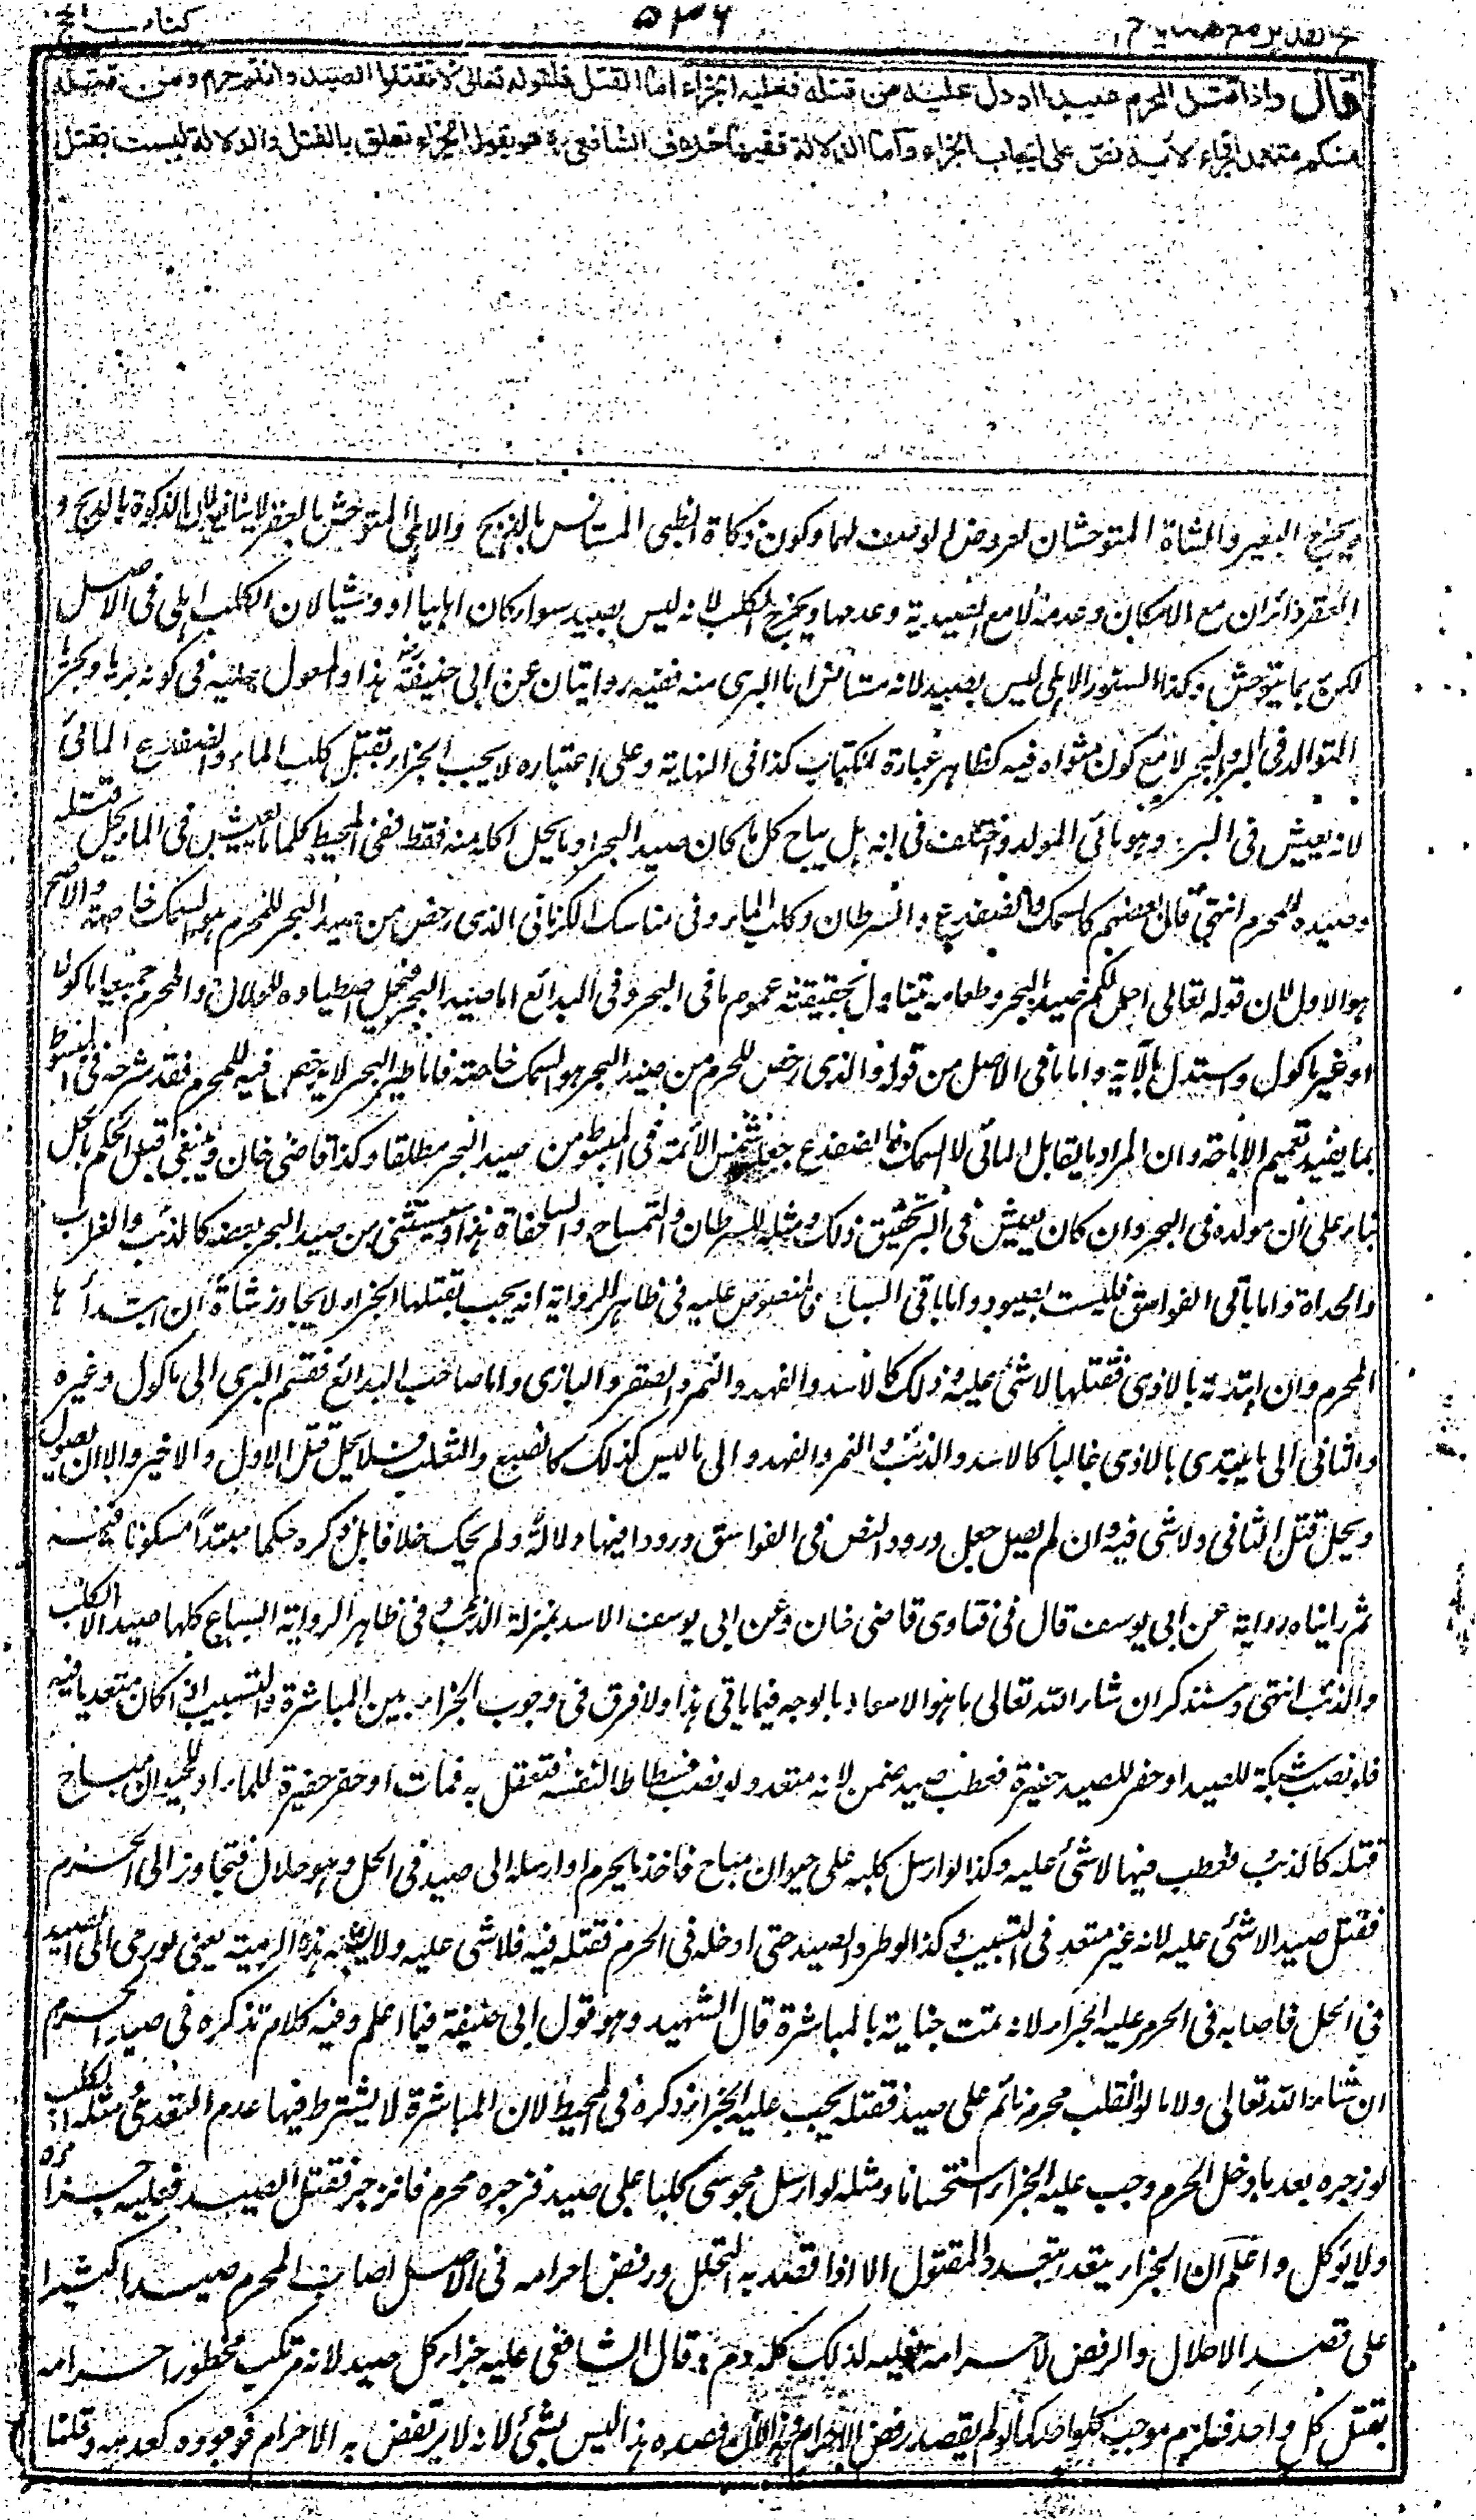 فتح القدير مع هدايه ج ۱
۵۳۶
كتاب الحج
قال واذا قتل المحرم صيدا او دل عليه من قتله فعليه الجزاء اما القتل فلقوله تعالى لا تقتلوا الصيد وانتم حرم ومن قتله
منكم متعمدا فجزاء لآية نص على ايجاب الجزاء واما الدلالة ففيها خلاف الشافعي رح هو يقول الجزاء تعلق بالقتل والدلالة ليست بقتل
ويخرج البعير والشاة المتوحشان لعروض الوصف لهما وكون ذكاة الظبي المستانس بالذبح والاهلي المتوحش بالعقر لا ينافيه لان الذكوة بالذبح و
العقر دائران مع الامكان وعدمه لا مع الصيدية وعدمها ويخرج الكلب لانه ليس بصيد سواء كان اهليا او وحشيا لان الكلب اهلي في الاصل
لكن ربما يتوحش وكذا السنور الاهلي ليس بصيد لانه مستانس اما البري منه ففيه روايتان عن ابي حنيفة رضه هذا والمعول عليه في كونه بريا وبحريا
التوالد في البر والبحر لا مع كون مثواه فيه كظاهر عبارة الكتاب كذا في النهاية وعلى اعتباره لا يجب الجزاء بقتل كلب الماء والضفدع المائي
لانه يعيش في البر وهو مائي المولد واختلف في انه هل يباح كل ما كان صيد البحر او ما يحل اكله منه فقط ففي المحيط كلما يعيش في الماء يحل قتله
وصيده للمحرم انتهى قال بعضهم كالسمك والضفدع والسرطان وكلب الماء وفي مناسك الكرماني الذي رخص من صيد البحر للمحرم هو السمك خاصة والاصح
هو الاول لان قوله تعالى احل لكم صيد البحر وطعامه يتناول بحقيقته عموم ما في البحر وفي البدائع اما صيد البحر فيحل اصطياده للحلال والمحرم جميعا ماكولا
او غير ماكول واستدل بالآية واما ما في الاصل من قوله والذي رخص للمحرم من صيد البحر هو السمك خاصة فاما طير البحر لا يرخص فيه للمحرم فقد شرحه في المبسوط
بما يفيد تعميم الاباحة وان المراد ما يقابل المائي لا السمك فالضفدع جعله شمس الائمة في المبسوط من صيد البحر مطلقا وكذا قاضي خان وينبغي قبل الحكم بالحل
بناء على ان مولده في البحر وان كان يعيش في البر تحقيق ذلك ومثله السرطان والتمساح والسلحفاة هذا ويستثنى من صيد البحر بعضه كالذئب والغراب
والحداة واما باقي الفواسق فليست بصيود واما باقي السباع فالمنصوص عليه في ظاهر الرواية انه يجب بقتلها الجزاء لا يجاوز شاة ان ابتدأها
المحرم وان ابتدته بالاذى فقتلها لا شئ عليه وذلك كالاسد والفهد والنمر والصقر والبازي واما صاحب البدائع فقسم البري الى ماكول وغيره
والثاني الى ما يبتدى بالاذى غالبا كالاسد والذئب والنمر والفهد والى ما ليس كذلك كالضبع والثعلب فلا يحل قتل الاول والاخير الا ان يصول
ويحل قتل الثاني ولا شئ فيه وان لم يصل جعل ورود النص في الفواسق ورودا فيها دلالة ولم يحك خلافا بل ذكره حكما مبتدأ مسكوتا فيه
ثم رايناه رواية عن ابي يوسف قال في فتاوى قاضي خان وعن ابي يوسف الاسد بمنزلة الذئب وفي ظاهر الرواية السباع كلها صيد الا الكلب
والذئب انتهى وسنذكر ان شاء الله تعالى ما هو الاسعد بالوجه فيما ياتي هذا ولا فرق في وجوب الجزاء بين المباشرة والتسبيب اذا كان متعديا فيه
فلو نصب شبكة للصيد او حفر للصيد حفيرة فعطب صيد ضمن لانه متعد ولو نصب فسطاطا لنفسه فتعقل به فمات او حفر حفيرة للماء او لحيوان مباح
قتله كالذئب فعطب فيها لا شئ عليه وكذا لو ارسل كلبه على حيوان مباح فاخذ ما يحرم او ارسله الى صيد في الحل وهو حلال فتجاوز الى الحرم
فقتل صيدا لا شئ عليه لانه غير متعد في التسبيب وكذا لو طرد الصيد حتى ادخله في الحرم فقتله فيه فلا شئ عليه ولا يشبه هذا الرمية يعني لو رمى الى الصيد
في الحل فاصابه في الحرم عليه الجزاء لانه تمت جنايته بالمباشرة قال الشهيد وهو قول ابي حنيفة فيما اعلم وفيه كلام نذكره في صيد الحرم
ان شاء الله تعالى ولا ما لو انقلب محرم نائم على صيد فقتله يجب عليه الجزاء ذكره في المحيط لان المباشرة لا يشترط فيها عدم التعدي ومثله الكلب
لو زجره بعد ما دخل الحرم وجب عليه الجزاء استحسانا ومثله لو ارسل مجوسي كلبا على صيد فزجره محرم فانزجر فقتل الصيد فعليه جزاؤه
ولا يؤكل واعلم ان الجزاء يتعدد بتعدد المقتول الا اذا قصد به التحلل ورفض احرامه في الاصل اصاب المحرم صيدا كثيرا
على قصد الاحلال والرفض لاحرامه فعليه لذلك كله دم وقال الشافعي عليه جزاء كل صيد لانه مرتكب محظور احرامه
بقتل كل واحد فيلزم موجب كل واحد كما لو لم يقصد رفض الاحرام وهذا لان قصده هذا ليس بشئ لانه لا يرتفض به الاحرام فوجوده كعدمه وقلنا